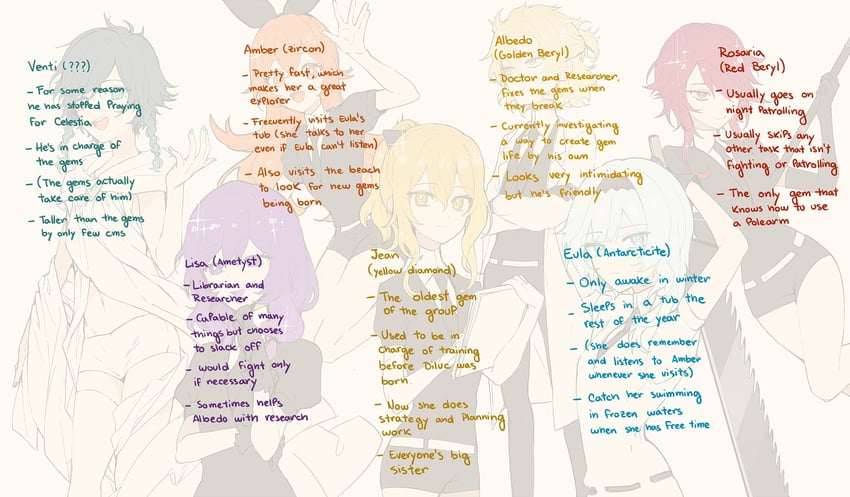 Venti (???)
- For some reason
he has stopped Praying
For Celestia
- He's in charge of
the gems
- (The gems actually
take care of him)
- Taller than the gems
by only few cms
Amber (zircon)
- Pretty fast, which
makes her a great
explorer
- Frecuently visits Eula's
tub (she talks to her
even if Eula can't listen)
- Also visits the beach
to look for new gems
being born
Albedo
(Golden Beryl)
- Doctor and Researcher,
fixes the gems when
they break
- Currently investigating
a way to create gem
life by his own
- Looks very intimidating
but he's friendly
Rosaria
(Red Beryl)
- Usually goes on
night Patrolling
- Usually skips any
other task that isn't
fighting or Patrolling
- The only gem that
knows how to use
a Polearm
Lisa (Ametyst)
- Librarian and
Researcher
- Capable of many
things but chooses
to slack off
- would fight only
if necessary
- Sometimes helps
Albedo with research
Jean
(yellow diamond)
- The oldest gem
of the group
- Used to be in
charge of training
before Diluc was
born
- Now she does
strategy and Planning
work
- Everyone's big
sister
Eula (Antarcticite)
- Only awake in winter
- Sleeps in a tub the
rest of the year
- (she does remember
and listens to Amber
whenever she visits)
- Catch her swimming
in frozen waters
when she has free time